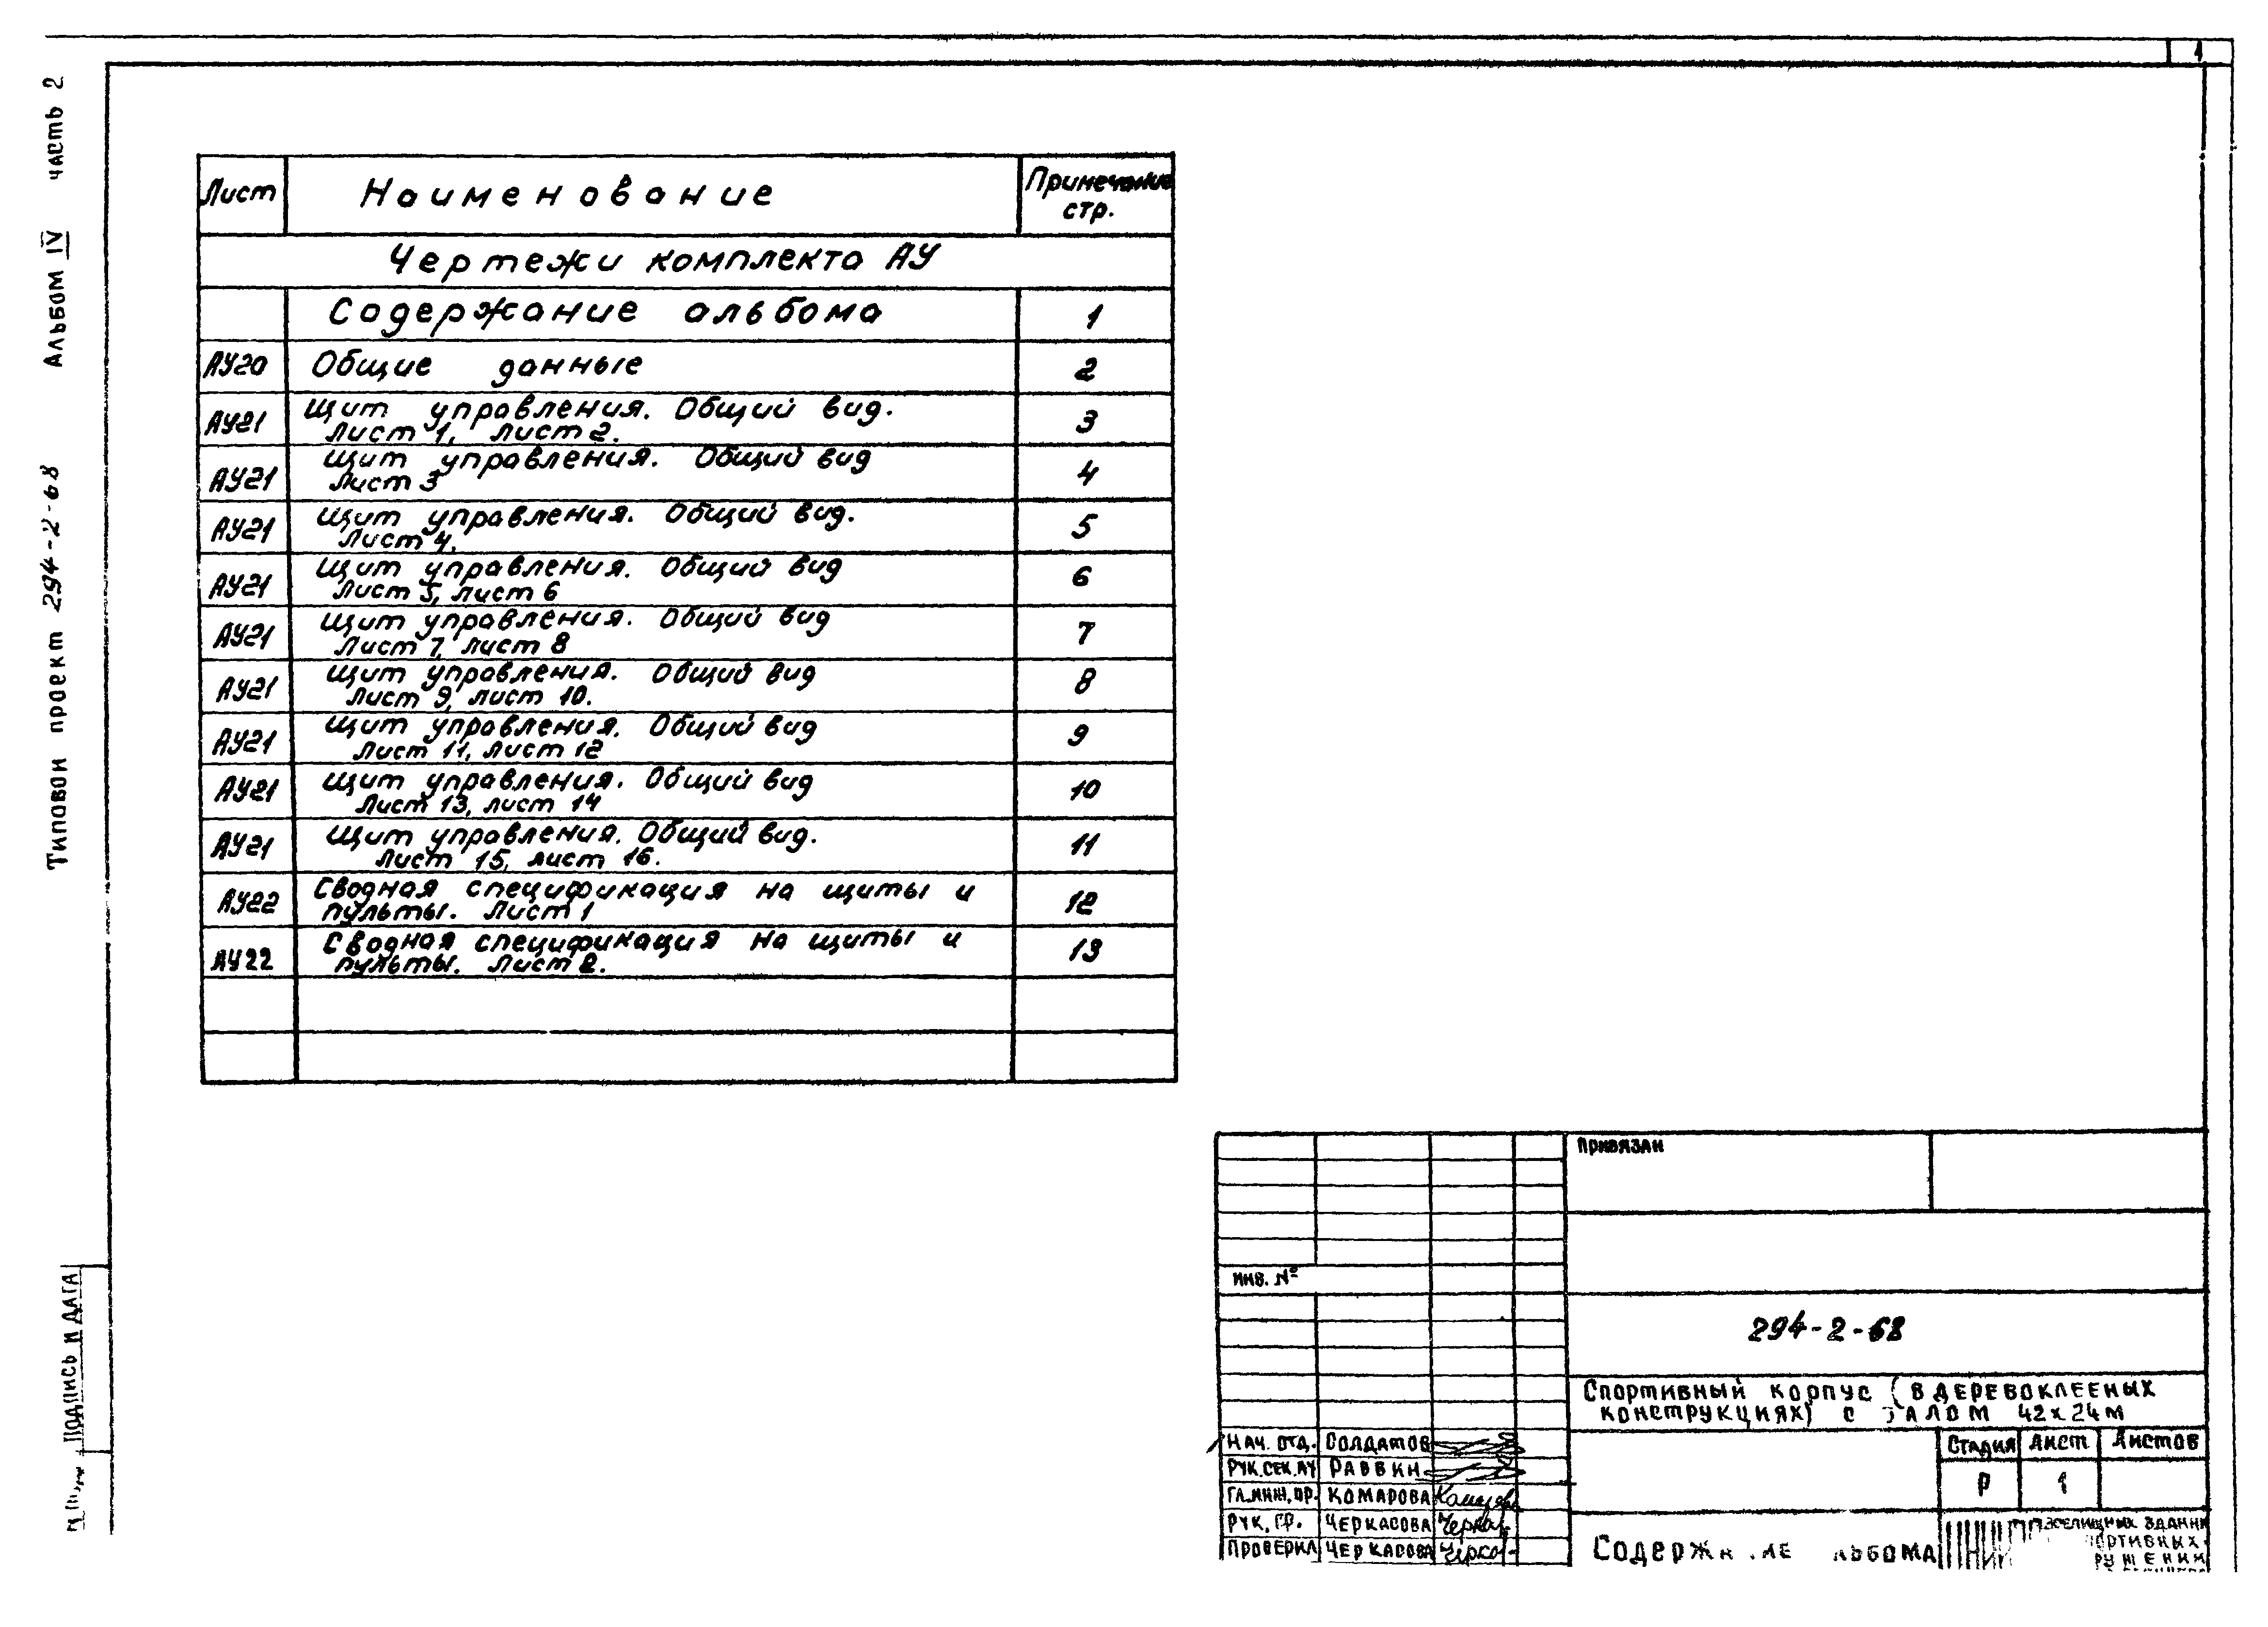 1
Типовой проект 294-2-68 Альбом IV часть 2
Лист Наименование Примечание
стр.
Чертежи комплекта АУ
Содержание альбома 1
АУ20 Общие данные 2
АУ21 Щит управления. Общий вид. 3
Лист 1, лист 2.
АУ21 Щит управления. Общий вид 4
Лист 3
АУ21 Щит управления. Общий вид. 5
Лист 4.
АУ21 Щит управления. Общий вид 6
Лист 5, лист 6
АУ21 Щит управления. Общий вид 7
Лист 7, лист 8
АУ21 Щит управления. Общий вид 8
Лист 9, лист 10.
АУ21 Щит управления. Общий вид 9
Лист 11, лист 12
АУ21 Щит управления. Общий вид 10
Лист 13, лист 14
АУ21 Щит управления. Общий вид. 11
Лист 15, лист 16.
АУ22 Сводная спецификация на щиты и 12
пульты. Лист 1
АУ22 Сводная спецификация на щиты и 13
пульты. Лист 2.
Подпись и дата
Привязан
Инв. №
294-2-68
Спортивный корпус (в деревоклееных
конструкциях) с залом 42х24м
Нач. отд. Солдатов
Рук. сек. АУ Раввин
Гл. инж. пр. Комарова
Рук. гр. Черкасова
Проверил Черкасова
Стадия Лист Листов
Р 1
Содержание альбома